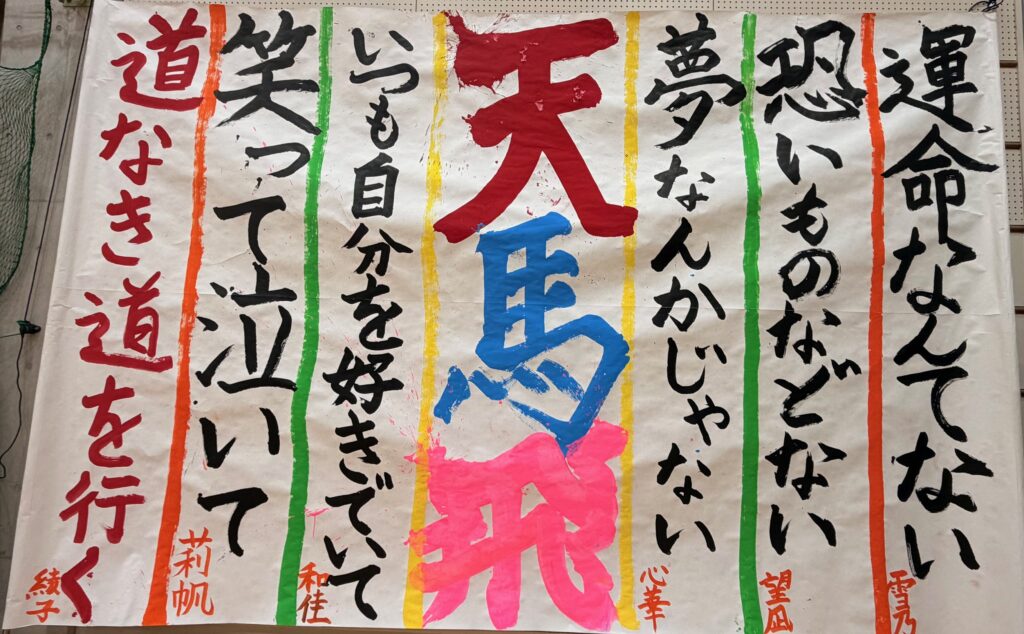 運命なんてない
雪乃
恐いものなどない
望凪
夢なんかじゃない
心華
天馬飛
いつも自分を好きでいて
和佳
笑って泣いて
莉帆
道なき道を行く
綾子